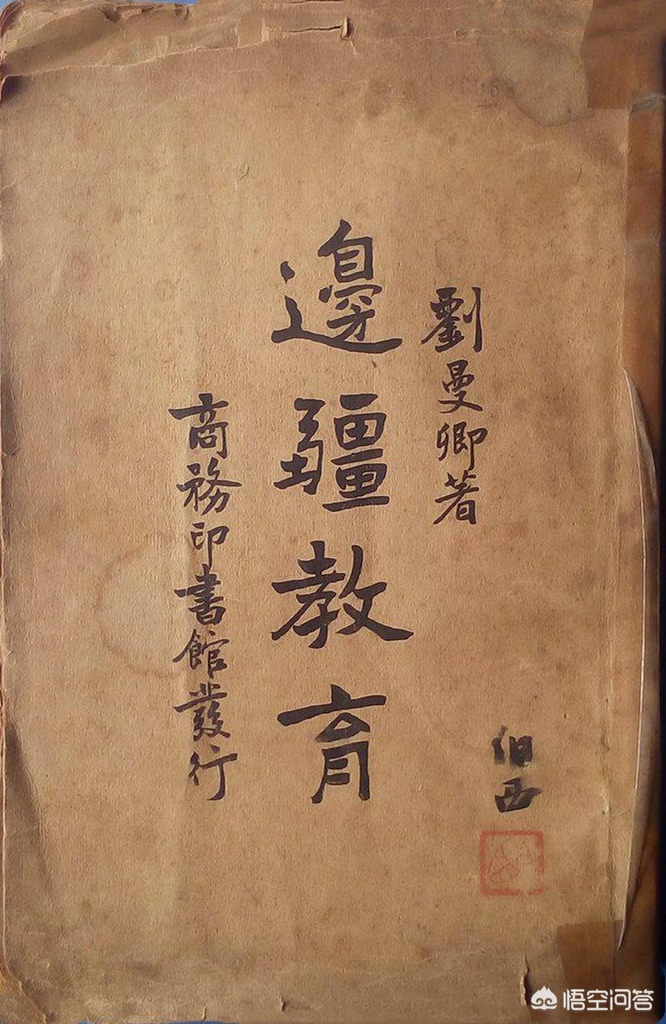 劉曼卿著
邊疆教育
商務印書館發行
悟空问答